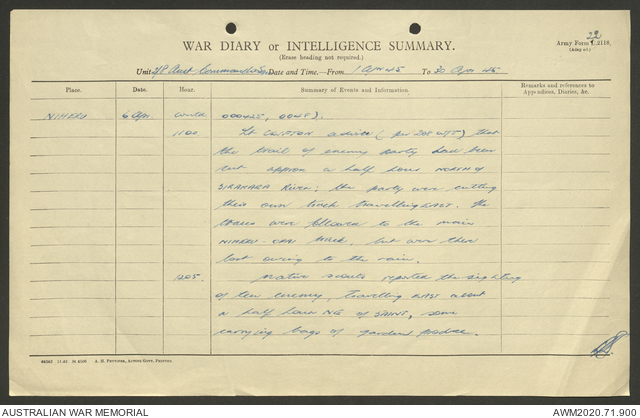 22
WAR DIARY or INTELLIGENCE SUMMARY.
(Erase heading not required.)
Army Form C.2118.
(Adapted)
Unit 2/8 Aust Commando Sqn Date and Time.—From 1 Apr 45 To 30 Apr 45
Place. Date. Hour. Summary of Events and Information. Remarks and references to Appendices, Diaries, &c.
NIHERU 6 Apr. contd 000425, 0048).
1100 Lt CLIFTON advise (per 208 W/T) that
the trail of enemy party had been
cut approx a half hour NORTH of
SIRAHARA River; the party were cutting
their own track travelling EAST. The
traces were followed to the main
NIHERU-ORAI track, but were then
lost owing to the rain.
1205. Native scouts reported the sighting
of ten enemy, travelling EAST about
a half hour NE of, some
carrying bags of garden produce.
A. H. Pettifer, Acting Govt. Printer.
AUSTRALIAN WAR MEMORIAL
AWM2020.71.900